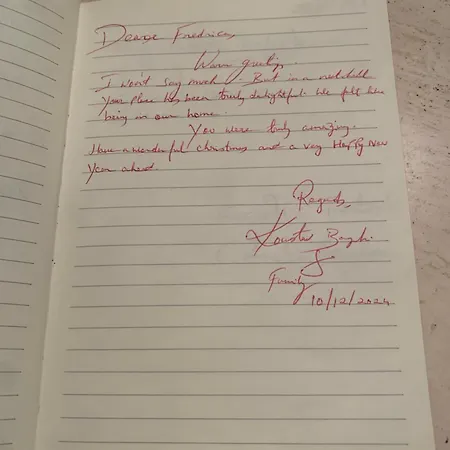 Deare Fredrica,
Warm greeting.
I won't say much. But in a nutshell
your place has been truly delightful. We felt like
being in our home.
You were truly amazing.
Have a wonderful christmas and a very Happy New
Year ahead.
Regards,
&
Family
10/12/2024